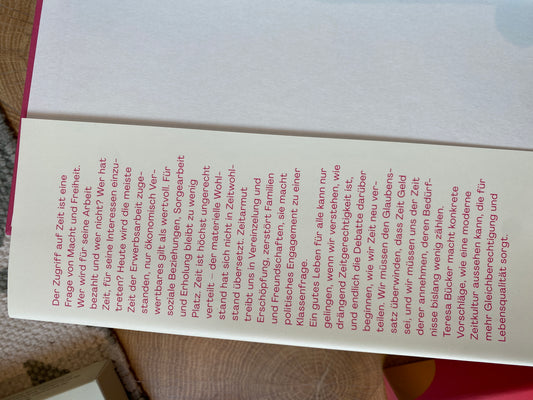 Der Zugriff auf Zeit ist eine
Frage von Macht und Freiheit.
Wer wird für seine Arbeit
bezahlt und wer nicht? Wer hat
Zeit, für seine Interessen einzu-
treten? Heute wird die meiste
Zeit der Erwerbsarbeit zuge-
standen, nur ökonomisch Ver-
wertbares gilt als wertvoll. Für
soziale Beziehungen, Sorgearbeit
und Erholung bleibt zu wenig
Platz. Zeit ist höchst ungerecht
verteilt – der materielle Wohl-
stand hat sich nicht in Zeitwohl-
stand übersetzt. Zeitarmut
treibt uns in Vereinzelung und
Erschöpfung, zerstört Familien
und Freundschaften, sie macht
politisches Engagement zu einer
Klassenfrage.
Ein gutes Leben für alle kann nur
gelingen, wenn wir verstehen, wie
drängend Zeitgerechtigkeit ist,
und endlich die Debatte darüber
beginnen, wie wir Zeit neu ver-
teilen. Wir müssen den Glaubens-
satz überwinden, dass Zeit Geld
sei, und wir müssen uns der Zeit
derer annehmen, deren Bedürf-
nisse bislang wenig zählen.
Teresa Bücker macht konkrete
Vorschläge, wie eine moderne
Zeitkultur aussehen kann, die für
mehr Gleichberechtigung und
Lebensqualität sorgt.